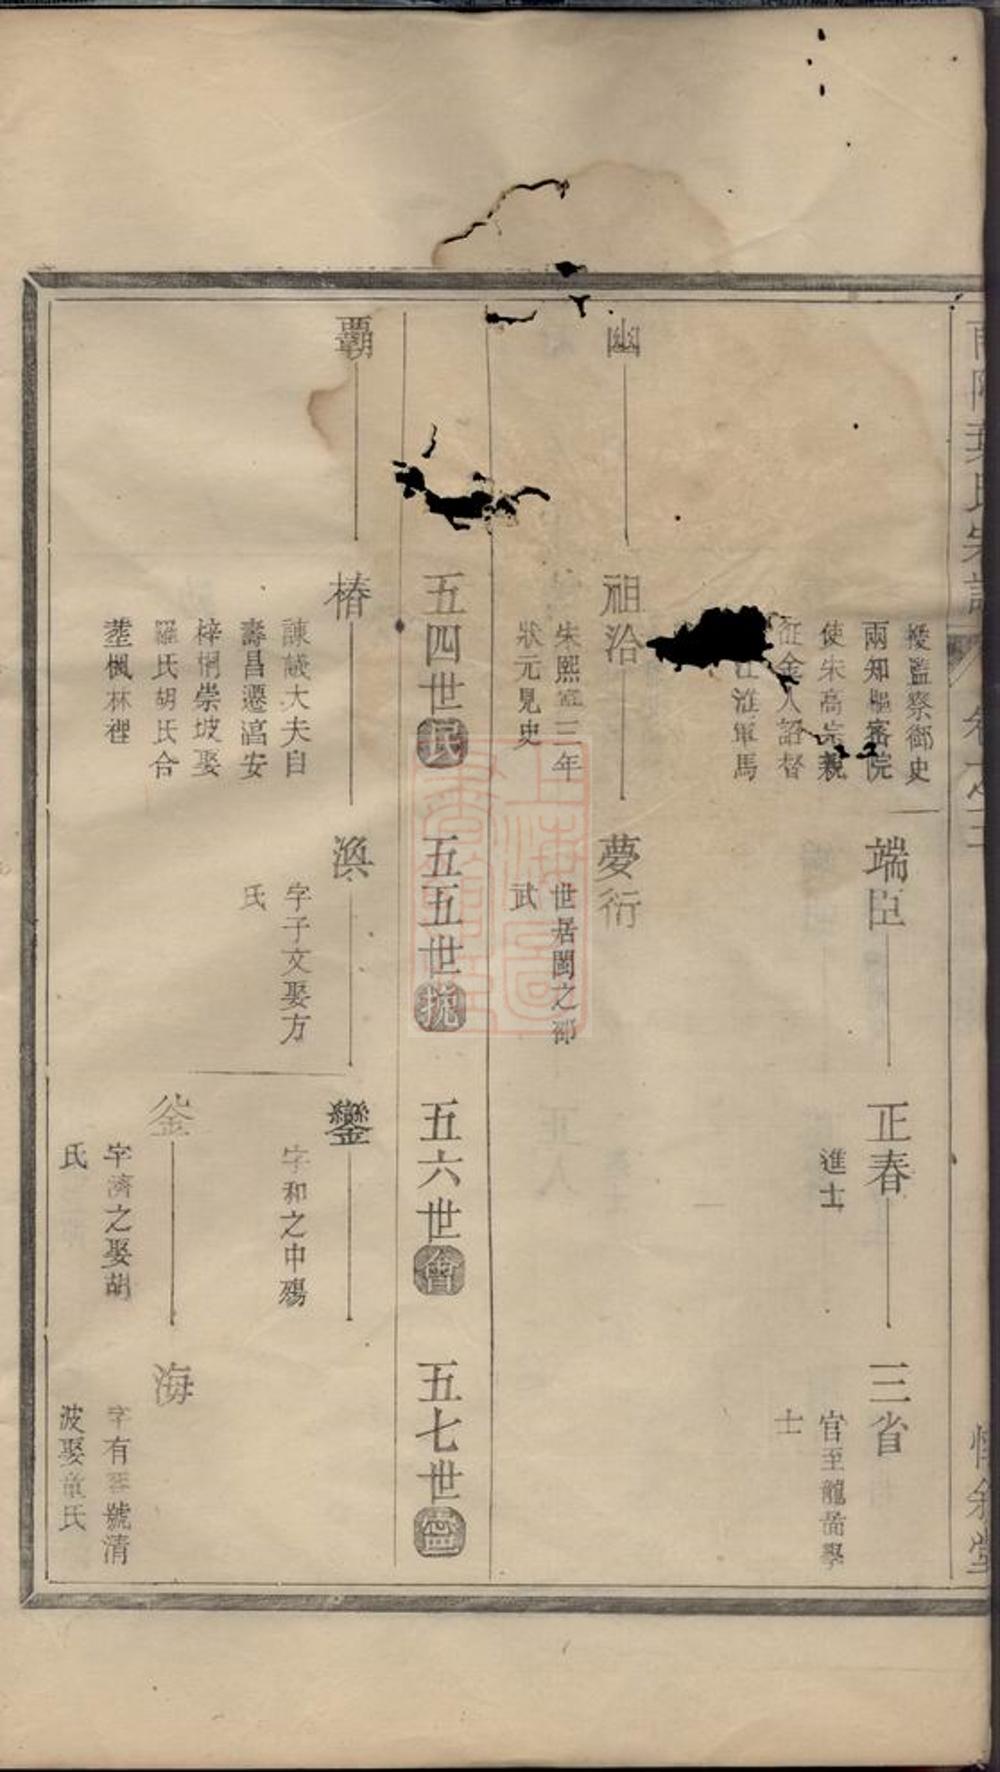 南陽葉氏宗譜
卷之三
惇敘堂
授監察御史
兩知樞密院
使朱高宗親
征金人詔督
江淮軍馬
端臣
正春
進士
三省
官至龍啚學
士
幽
祖洽
朱熙寧三年
狀元見史
夢衍
世居閩之邵
武
五四世民
五五世
五六世會
五七世
覇
椿
諫議大夫自
壽昌遷湻安
梓桐崇坡娶
羅氏胡氏合
塟楓林裡
渙
字子文娶方
氏
鑾
字和之中殤
釜
字濟之娶胡
氏
海
字有容號清
波娶童氏
上海圖書館藏